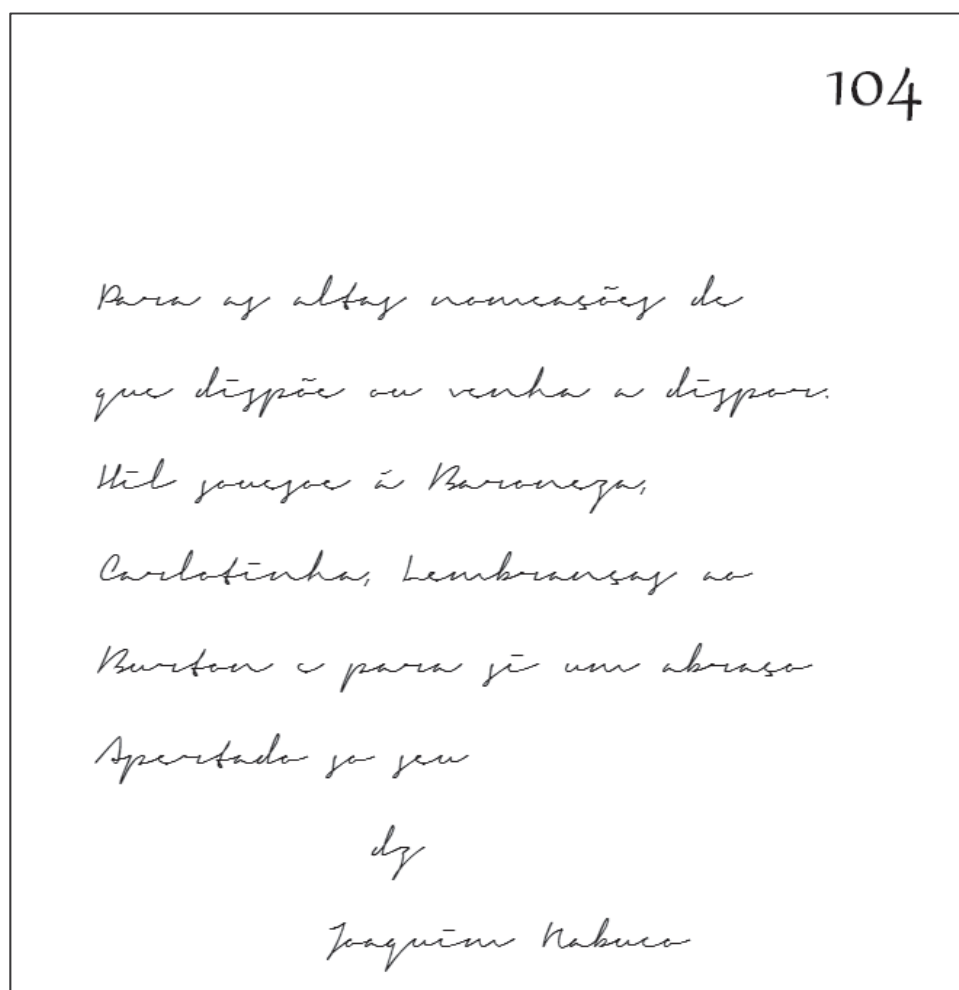 104
Para as altas nomeações de
que dispõe ou venha a dispor.
Hil souesoe á Baroneza,
Carlotinha, Lembranças ao
Burton e para si um abraço
Apertado so seu
dz
Joaquim Nabuco